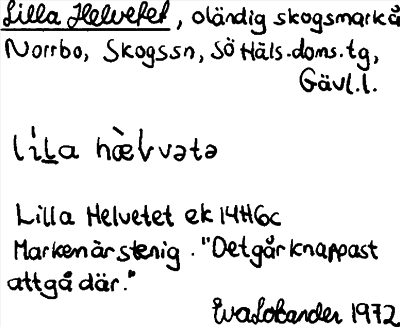 Lilla Helvetet, oländig skogsmark å
Norrbo, Skogssn, SÖ Häls. doms. tg,
Gävl. l.
lìḷa hæ̀lvətə
Lilla Helvetet ek 14H6c
Marken är stenig. "Det går knappast
att gå där."
Eva 1972